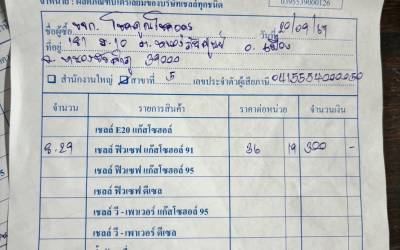 จำหน่าย : ผลิตภัณฑ์ปิโตรเลียมของบริษัทเชลล์ทุกชนิด
0395539000126
ชื่อผู้ซื้อ หจก. โชคคูณโชคถาวร วันที่ 20/09/67
ที่อยู่ 181 ม.10 ต. อ.เมือง
จ. หนองบัวลำภู 39000
สำนักงานใหญ่ สาขาที่ 5 เลขประจำตัวผู้เสียภาษี 0415554000050
จำนวน รายการสินค้า ราคาต่อหน่วย จำนวนเงิน
เชลล์ E20 แก๊สโซฮอล์
8.29 เชลล์ ฟิวเซฟ แก๊สโซฮอล์ 91 36 19 300 -
เชลล์ ฟิวเซฟ แก๊สโซฮอล์ 95
เชลล์ ฟิวเซฟ ดีเซล
เชลล์ วี - เพาเวอร์ แก๊สโซฮอล์ 95
เชลล์ วี - เพาเวอร์ ดีเซล